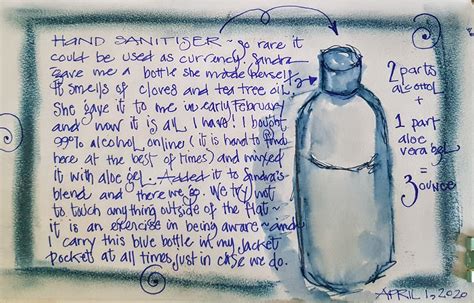 HAND SANITISER ~ so rare it
could be used as currency. Sandra
gave me a bottle she made herself
It smells of cloves and tea tree oil.
She gave it to me in early February
and now it is all I have! I bought
99% alcohol online (it is hard to find
here at the best of times) and mixed
it with aloe gel. Added it to Sandra's
blend and there we go. We try not
to touch anything outside of the flat ~
it is an exercise in being aware ~ and
I carry this blue bottle in my jacket
pocket at all times, just in case we do.
2 parts
alcohol
+
1 part
aloe
vera gel
=
3 ounce
APRIL 1, 2020